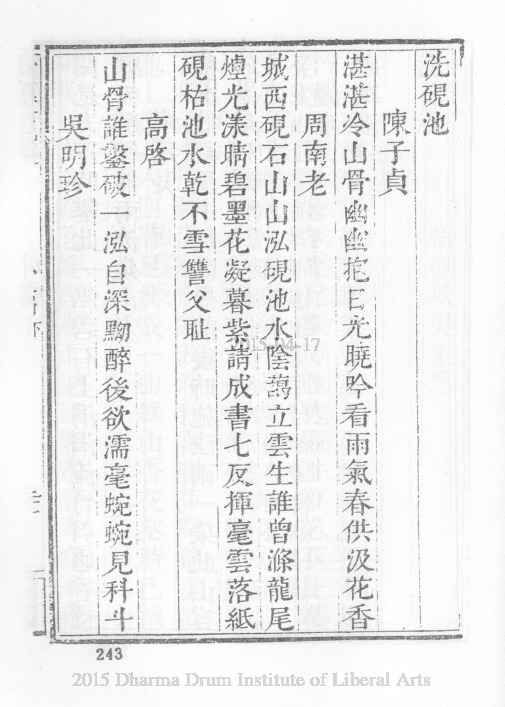 洗硯池
陳子貞
湛湛冷山骨幽幽抱日光曉吟看雨氣春供汲花香
周南老
城西硯石山山泓硯池水陰藹立雲生誰曾滌龍尾
煙光漾晴碧墨花凝暮紫請成書七反揮毫雲落紙
硯枯池水乾不雪讐父耻
高啓
山骨誰鑿破一泓自深黝醉後欲濡毫蜿蜿見科斗
吳明珍
2015-04-17
243
2015 Dharma Drum Institute of Liberal Arts